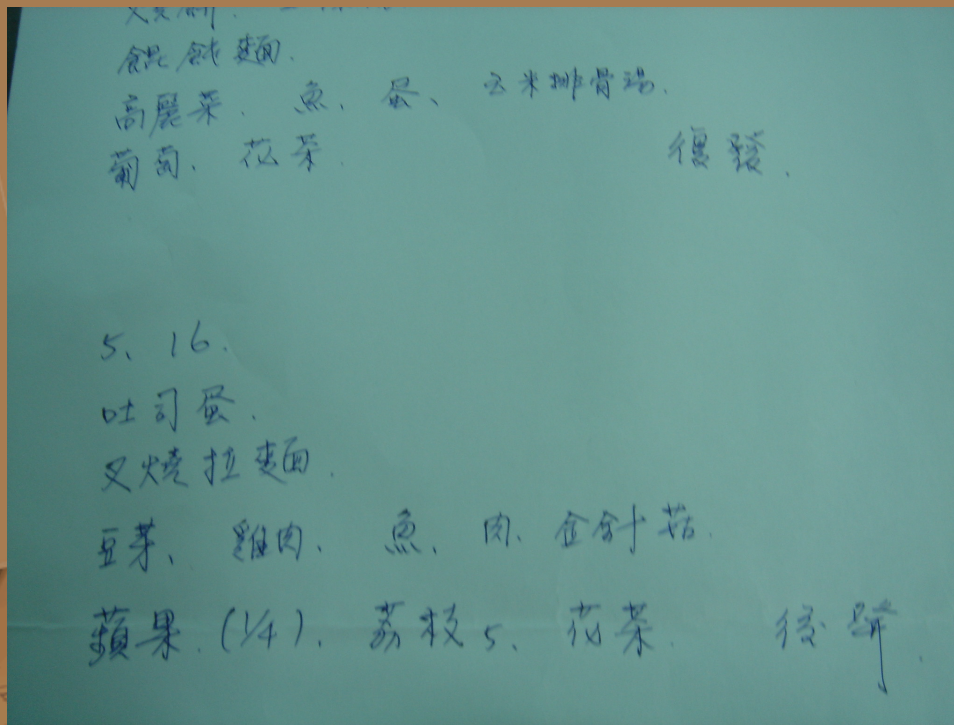 餛飩麵.
高麗菜. 魚、蛋、玉米排骨湯.
葡萄. 花茶. 復發.
5、16.
吐司蛋.
叉燒拉麵.
豆芽、雞肉. 魚、肉、金針菇.
蘋果.(1/4). 荔枝5、花茶.